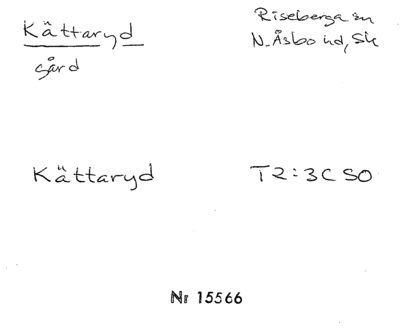 Kättaryd
gård
Riseberga sn
N. Åsbo hd, Sk
Kättaryd
T2:3C SO
Nr 15566